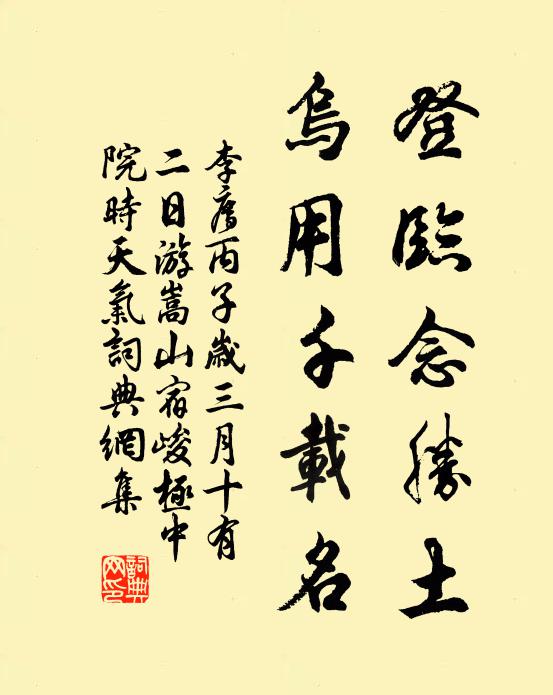 登臨念勝土
烏用千載名
李廌丙子歲三月十有
二日游嵩山宿峻極中
院時天氣詞典網集
詞典
网印